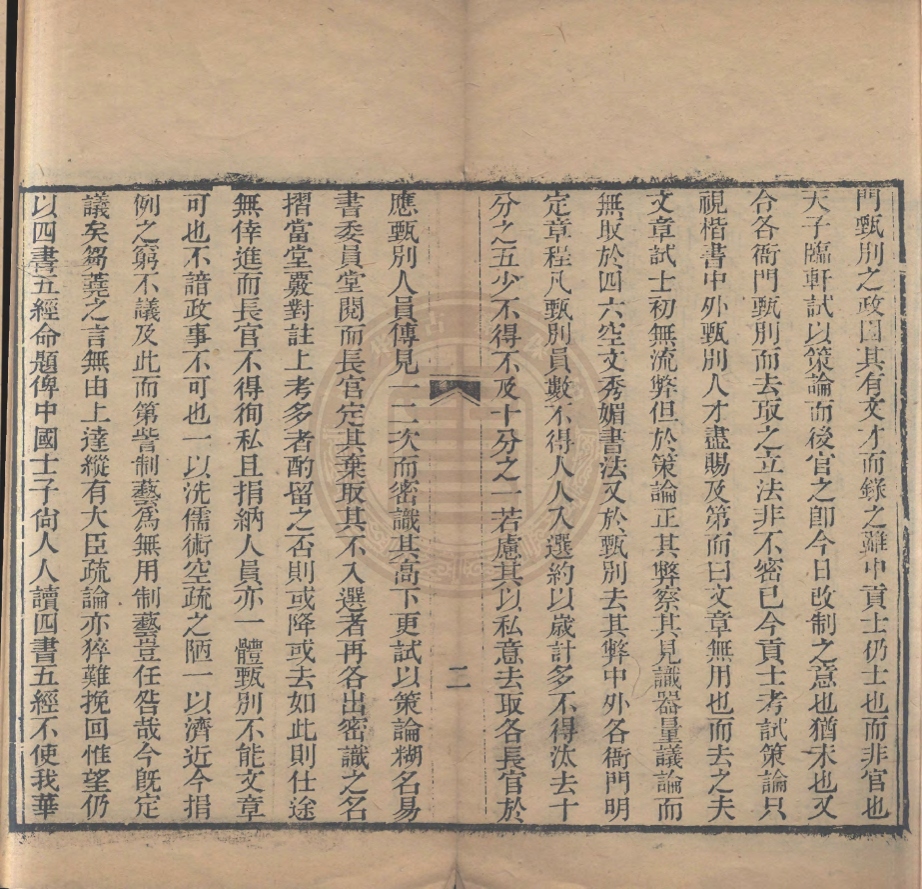 門甄別之政因其有文才而錄之雖中貢士仍士也而非官也
天子臨軒試以策論而後官之卽今日改制之意也猶未也又
合各衙門甄別而去取之立法非不密已今貢士考試策論只
視楷書中外甄別人才盡賜及第而曰文章無用也而去之夫
文章試士初無流弊但於策論正其弊察其見識器量議論而
無取於四六空文秀媚書法又於甄別去其弊中外各衙門明
定章程凡甄別員數不得人人入選約以歲計多不得汰去十
分之五少不得不及十分之一若慮其以私意去取各長官於
二
應甄別人員傳見一二次而密識其高下更試以策論糊名易
書委員堂閱而長官定其棄取其不入選者再各出密識之名
摺當堂覈對註上考多者酌留之否則或降或去如此則仕途
無倖進而長官不得徇私且捐納人員亦一體甄別不能文章
可也不諳政事不可也一以洗儒術空疏之陋一以濟近今捐
例之窮不議及此而第訾制藝爲無用制藝豈任咎哉今旣定
議矣芻蕘之言無由上達縱有大臣疏論亦猝難挽回惟望仍
以四書五經命題俾中國士子尙人人讀四書五經不使我華